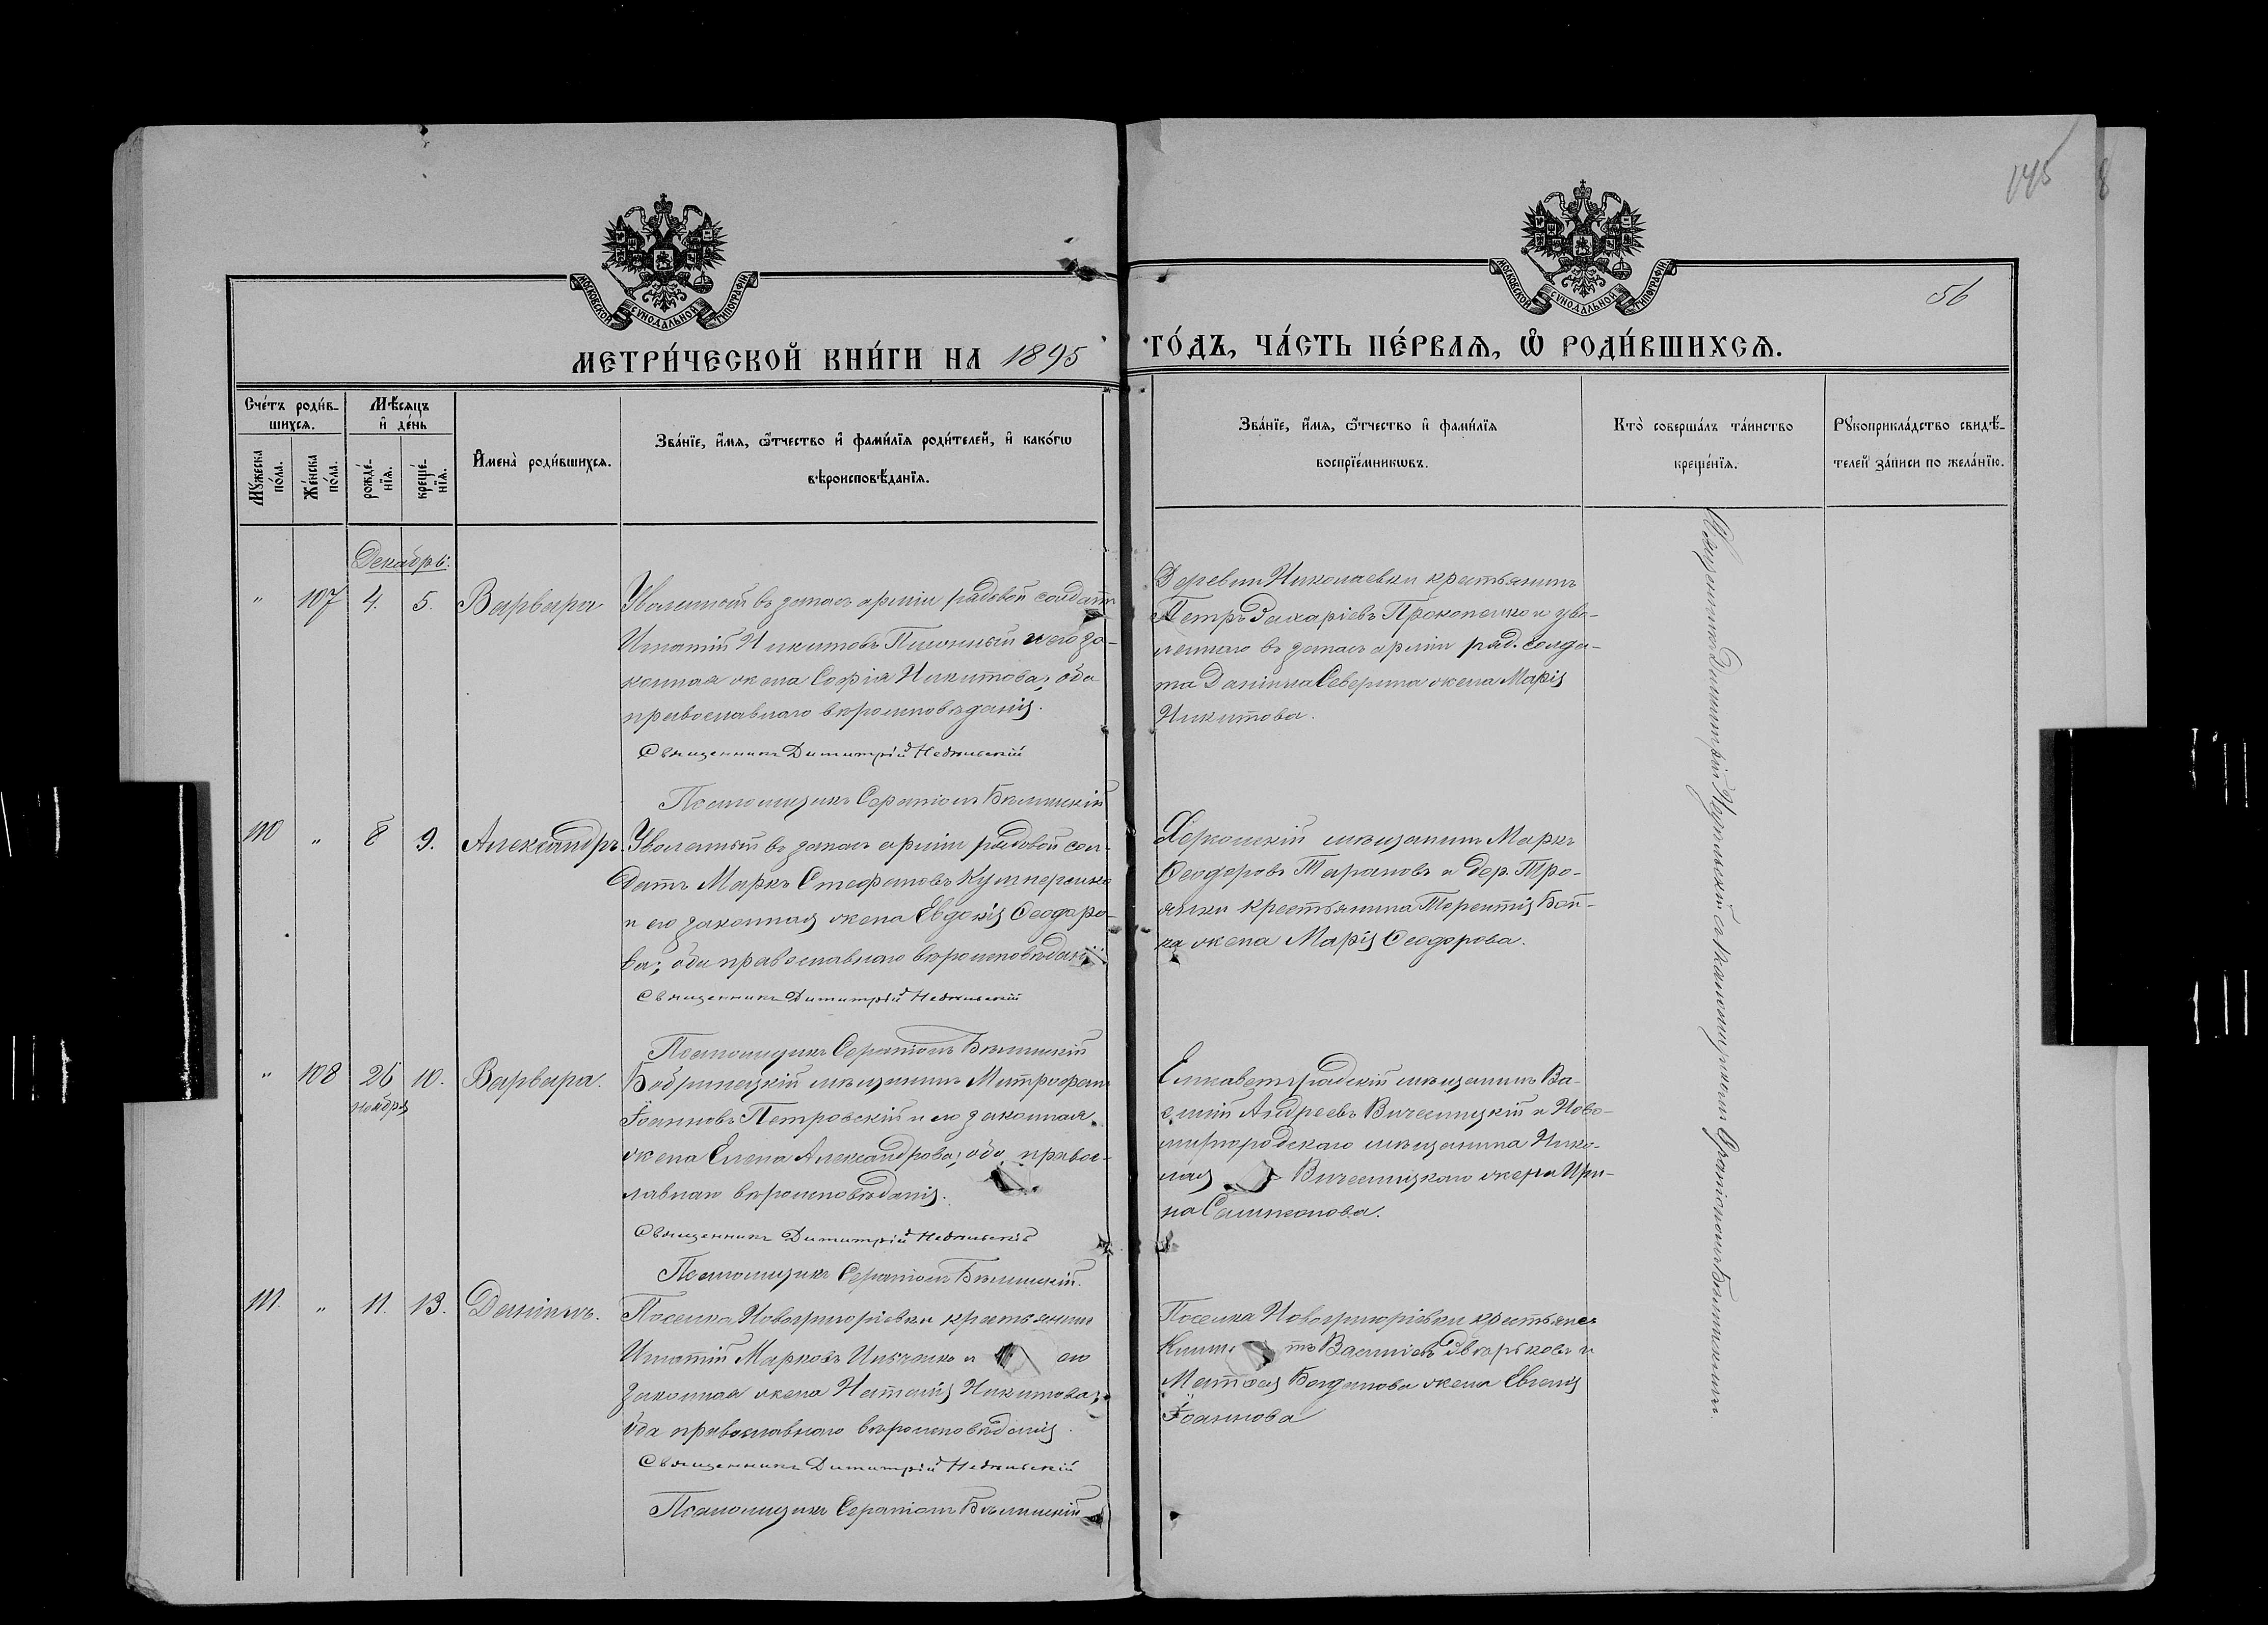 145
56
МОСКОВСКОЙ СѴНОДАЛЬНОЙ ТИПОГРАФІИ
МОСКОВСКОЙ СѴНОДАЛЬНОЙ ТИПОГРАФІИ
МЕТРИ́ЧЕСКОЙ КНИ́ГИ НА 1895 ГО́ДЪ, ЧА́СТЬ ПЕ́РВАѦ, Ѽ РОДИ́ВШИХСѦ.
Сче́тъ роди́в-
шихсѧ.
Мꙋ́жеска по́ла.
Же́нска по́ла.
Мѣ́сѧцъ
и҆ де́нь
рожде́-нїѧ.
креще́-нїѧ.
И҆мена̀ роди́вшихсѧ.
Зва́нїе, и҆́мѧ, ѻ҆́тчество и҆ фами́лїѧ роди́телей, и҆ како́гѡ
вѣроисповѣ́данїѧ.
Зва́нїе, и҆́мѧ, ѻ҆́тчество и҆ фами́лїѧ
воспрїе́мникѡвъ.
Кто̀ соверша́лъ та́инство
креще́нїѧ.
Рꙋкоприкла́дство свидѣ́-
телей за́писи по жела́нїю.
Декабрь:
" 107 4. 5. Варвара
Уволенный въ запасъ арміи рядовой солдатъ
Игнатій Никитовъ и его за-
конная жена Софія Никитова, оба
православнаго вѣроисповѣданія.
Священникъ Димитрій Недѣльскій
Псаломщикъ Серапіонъ Бѣлинскій
Деревни Николаевки крестьянинъ
Петръ Захаріевъ Прокопенко и уво-
леннаго въ запасъ арміи ряд. солда-
та Даніила Северина жена Марія
Никитова.
110 " 8 9. Александръ.
Уволенный въ запасъ арміи рядовой сол-
датъ Маркъ Стефановъ
и его законная жена Евдокія Ѳеодоро-
ва; оба православнаго вѣроисповѣданія.
Священникъ Димитрій Недѣльскій
Псаломщикъ Серапіонъ Бѣлинскій
Херсонскій мѣщанинъ Маркъ
Ѳеодоровъ Тарановъ и дер. Тро-
янки крестьянина Терентія Бой-
ка жена Марія Ѳеодорова.
" 108 26 10. Варвара.
ноября
Бобринецкій мѣщанинъ Митрофанъ
Іоанновъ Петровскій и его законная
жена Елена Александрова; оба правос-
лавнаго вѣроисповѣданія.
Священникъ Димитрій Недѣльскій
Псаломщикъ Серапіонъ Бѣлинскій.
Елисаветградскій мѣщанинъ Ва-
силій Андреевъ и Ново-
миргородскаго мѣщанина Нико-
лая жена Ири-
на Самсонова.
111. " 11. 13. Даніилъ.
Поселка Новогригоріевки крестьянинъ
Игнатій Марковъ и его
законная жена Наталія Никитова;
оба православнаго вѣроисповѣданія.
Священникъ Димитрій Недѣльскій
Псаломщикъ Серапіонъ Бѣлинскій
Поселка Новогригоріевки крестьяне:
Василіевъ и
Матѳея Богданова жена Евгенія
Іоаннова
Священникъ Димитрій Недѣльскій съ псаломщикомъ Серапіономъ Бѣлинскимъ.